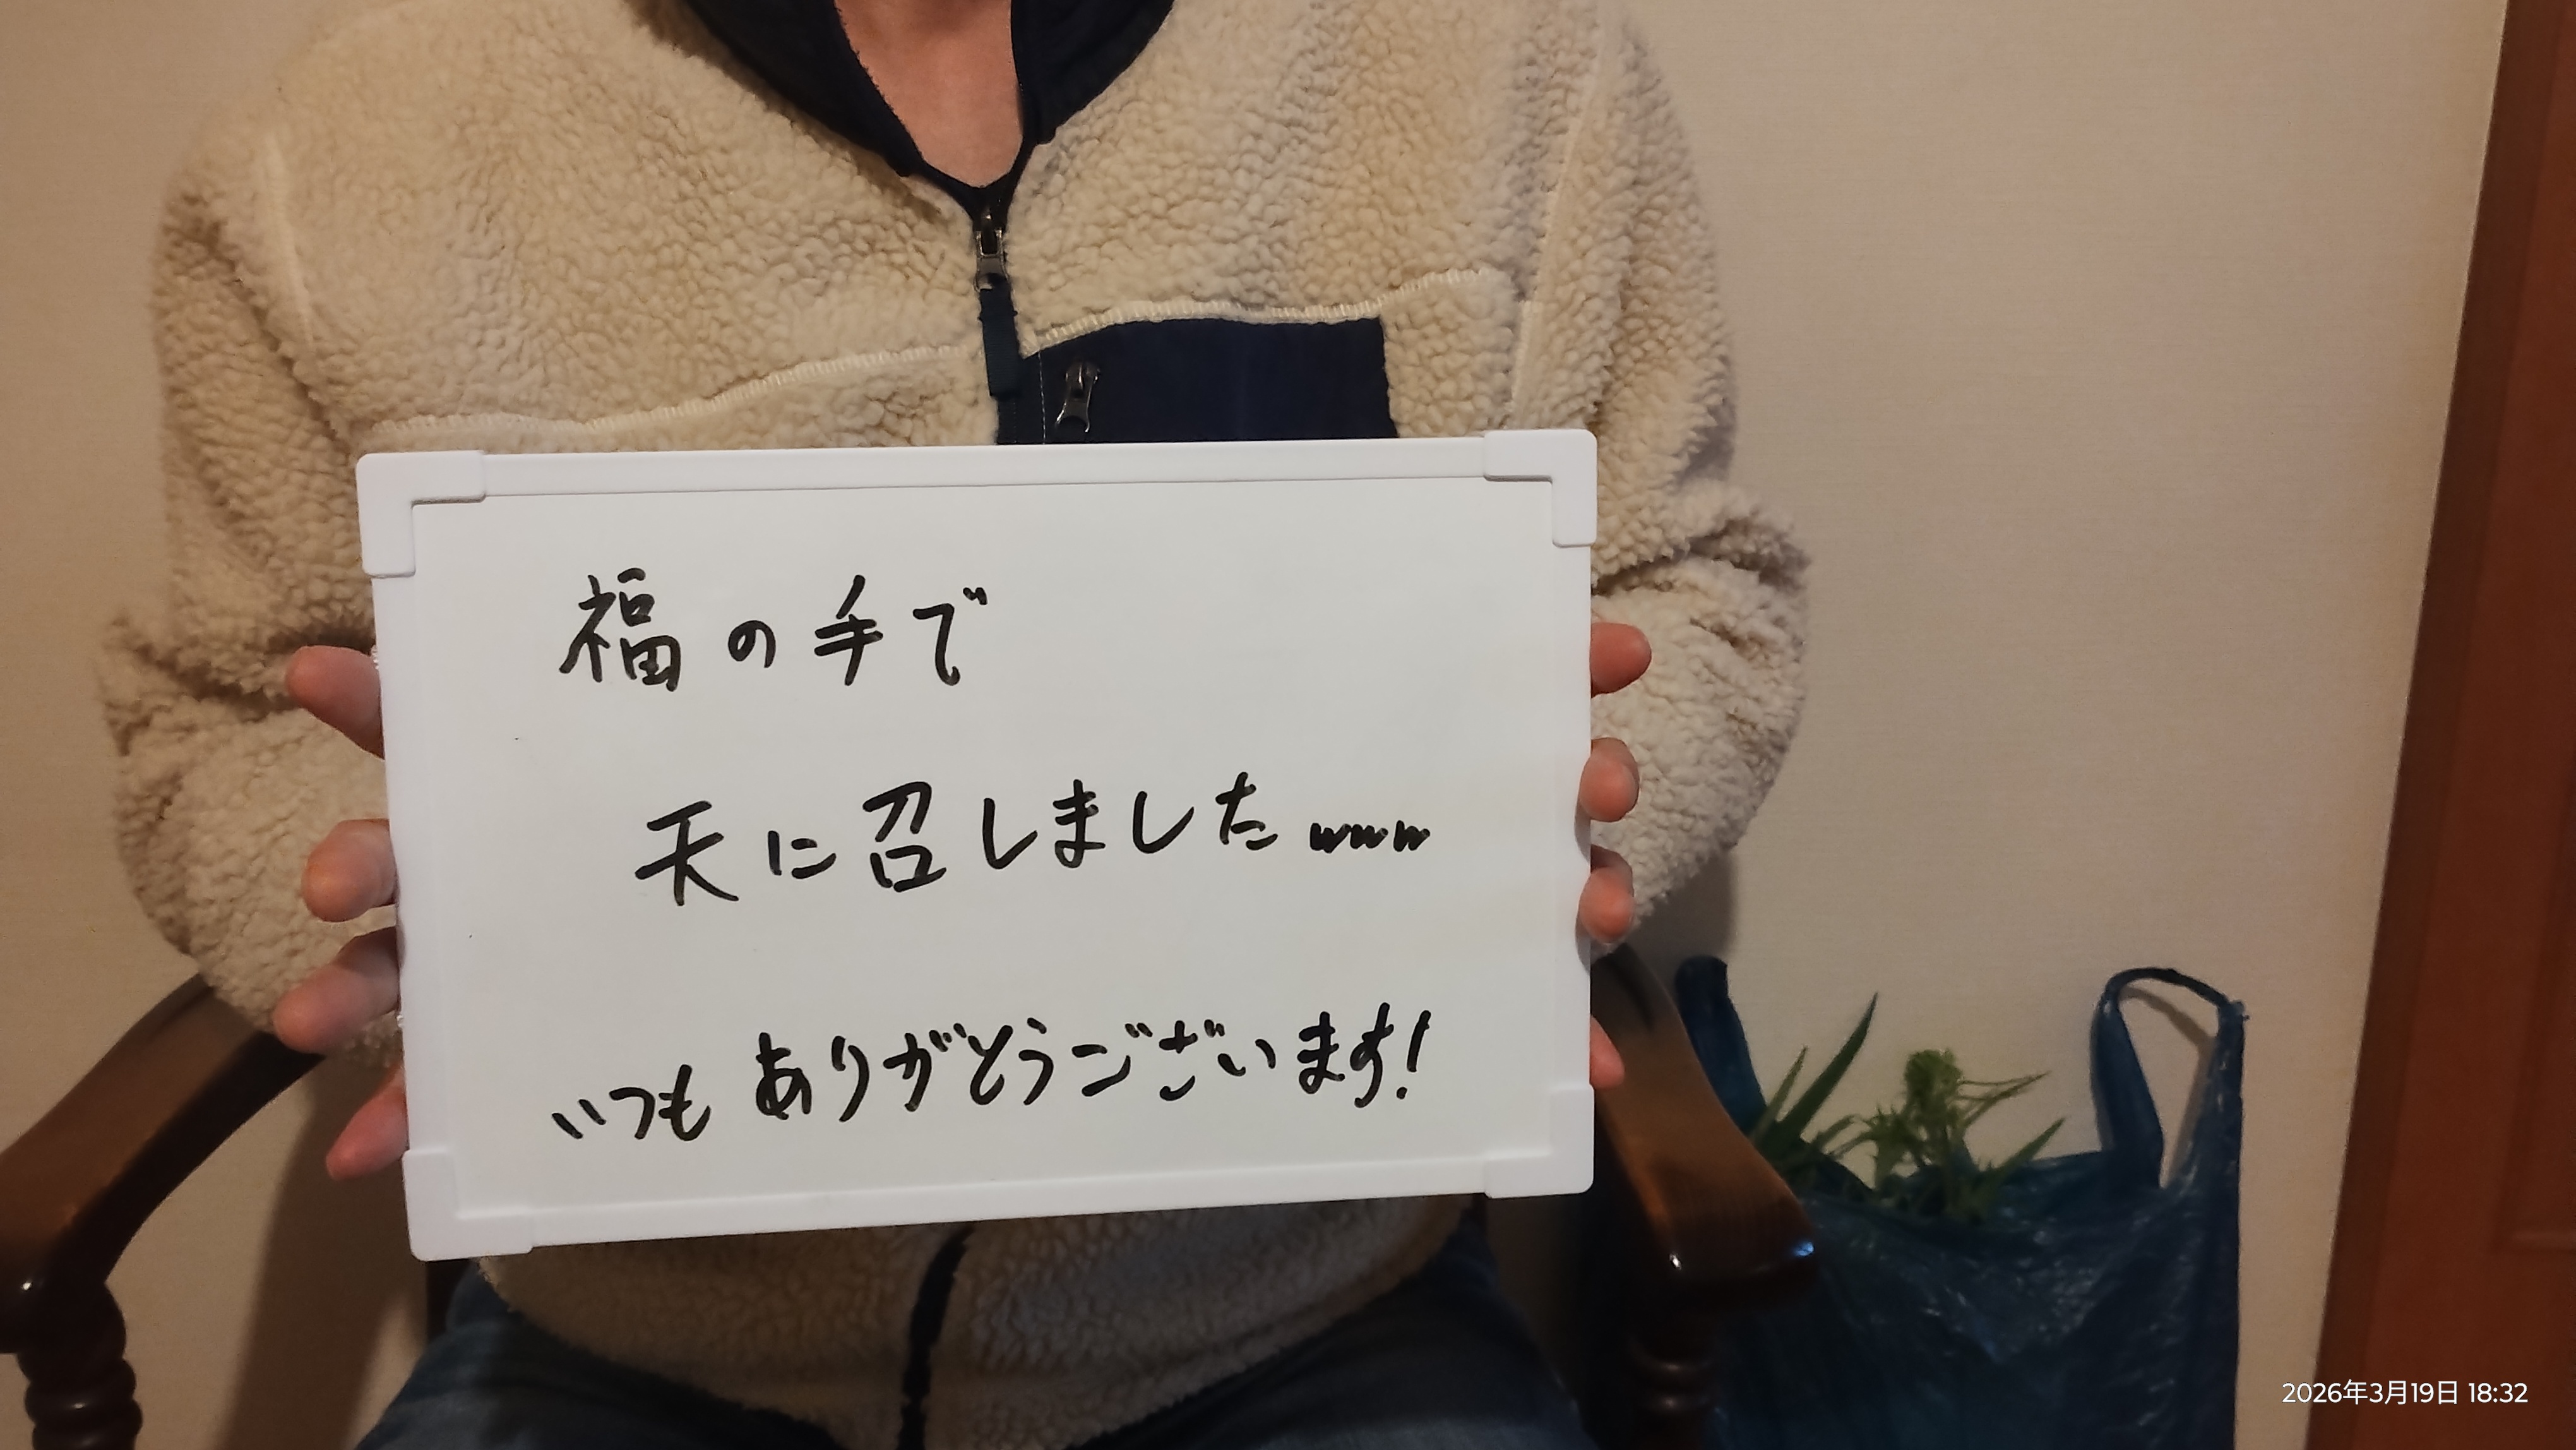 福の手で
天に召しましたwww
いつもありがとうございます!
2026年3月19日 18:32